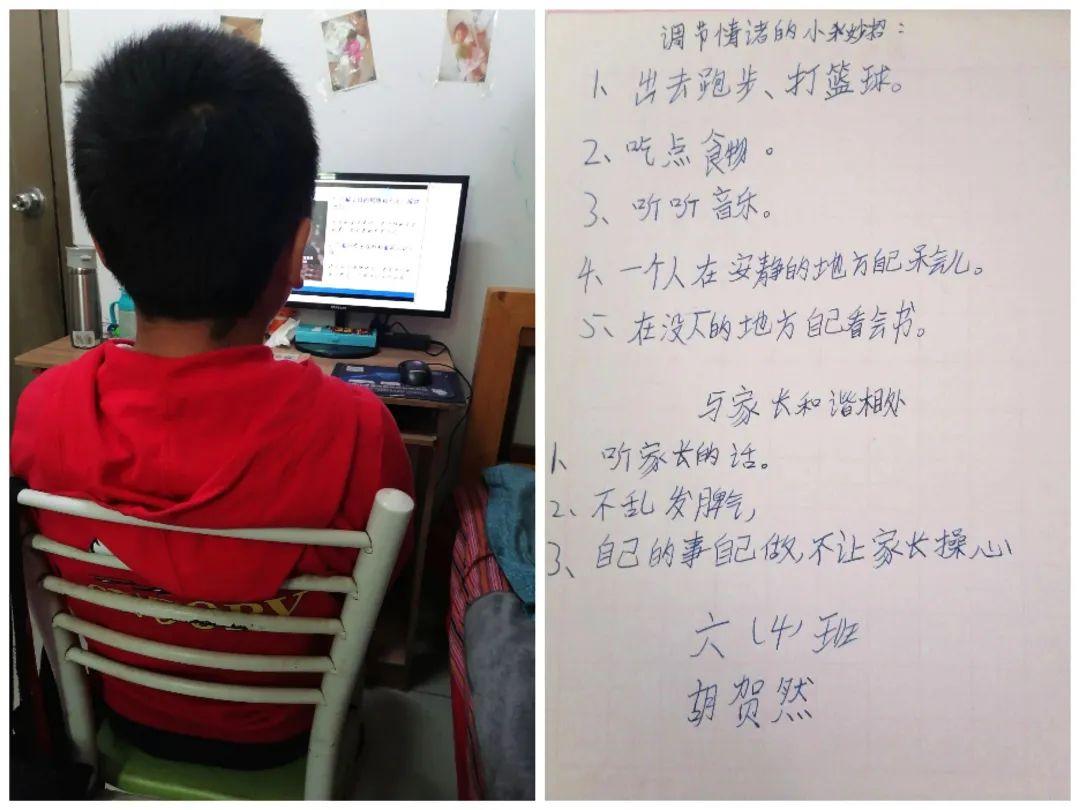 调节情诸的小妙招：
1、出去跑步、打篮球。
2、吃点食物。
3、听听音乐。
4、一个人在安静的地方自己呆会儿。
5、在没人的地方自己看会书。
与家长和谐相处
1、听家长的话。
2、不乱发脾气,
3、自己的事自己做,不让家长操心
六（4）班
胡贺然